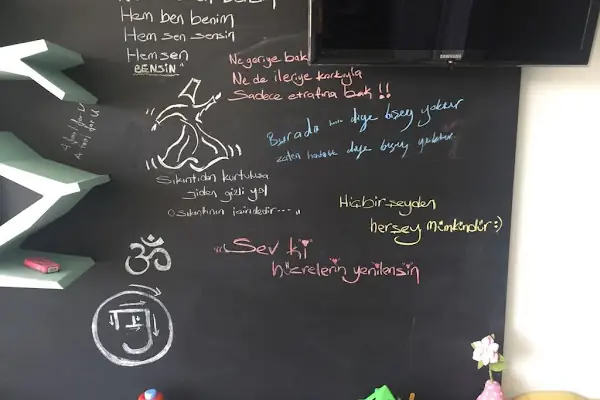 Hem ben benim
Hem sen sensin
Hem sen
BENSİN
SAMSUNG
Ne geriye bak
Ne de ileriye korkuyla
Sadece etrafına bak !!
Burada diye bişey yoktur
diye bişey
Sıkıntıdan kurtuluşa
giden gizli yol
o sıkıntının içindedir....."
Hiçbir şeyden
herşey mümkündür :)
"...Sev ki
hücrelerin yenilensin
ॐ